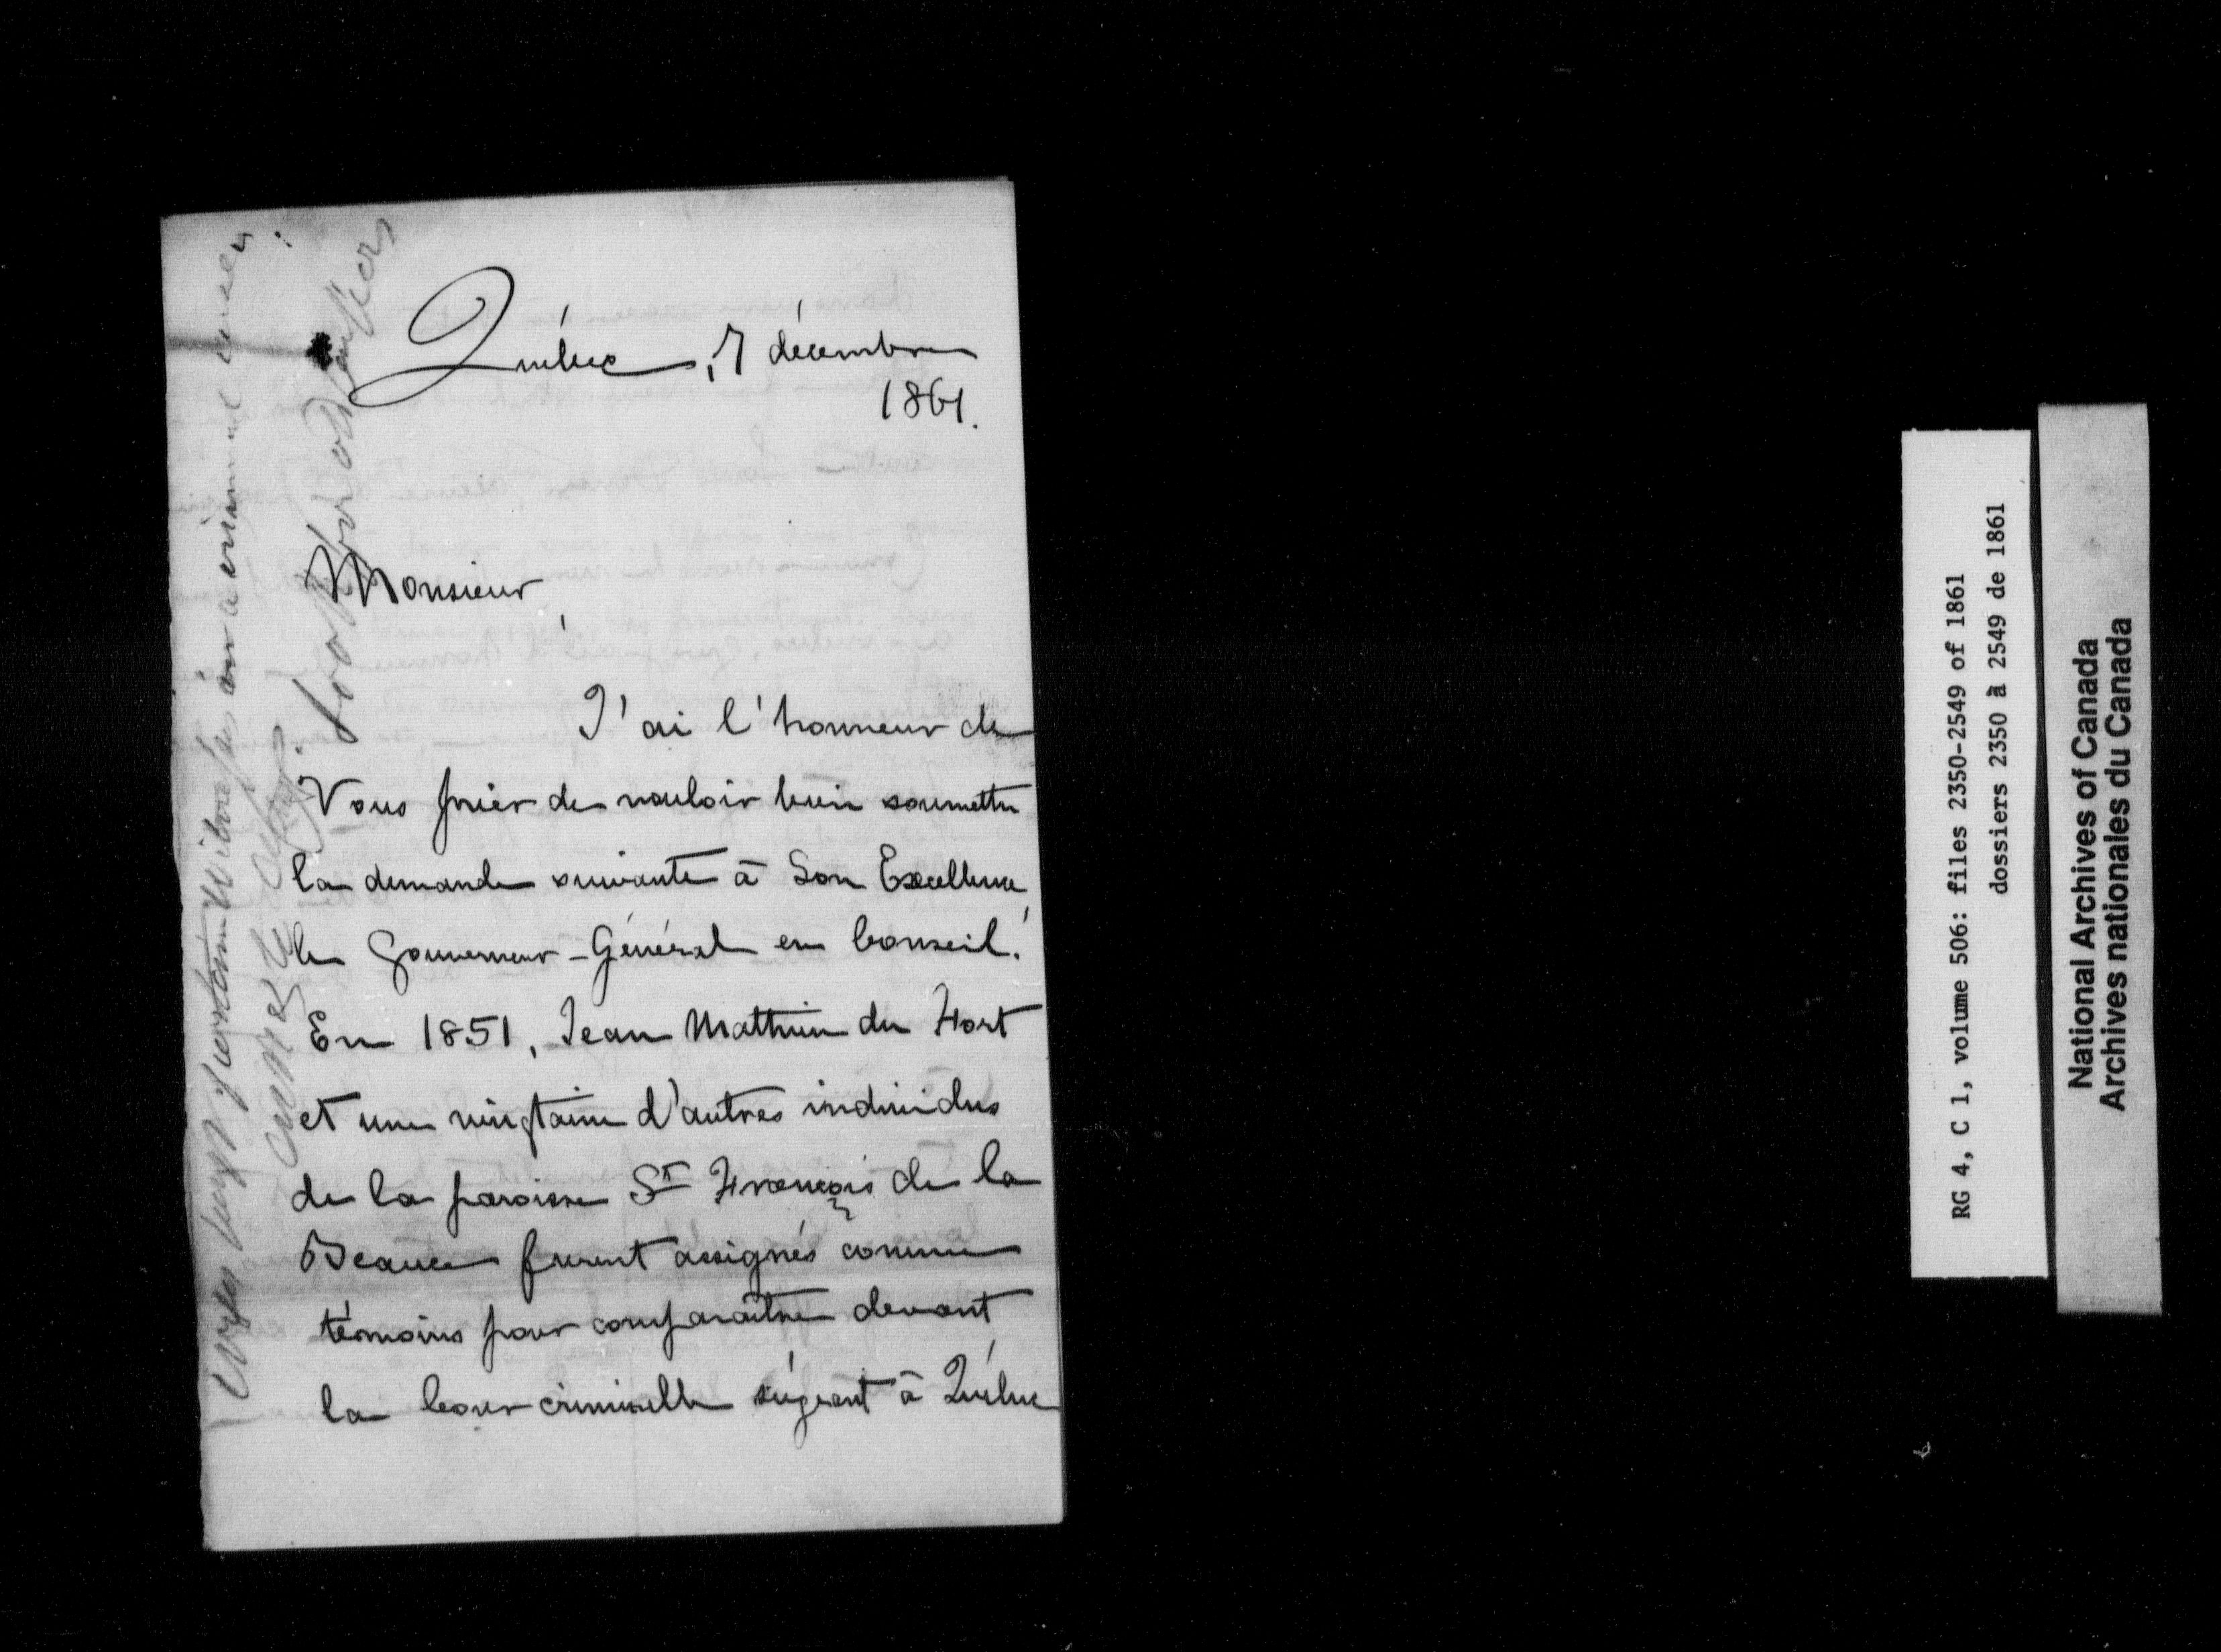 Québec, 7 décembre
1861.
Monsieur,
J'ai l'honneur de
Vous prier de vouloir bien soumettre
la demande suivante à Son Excellence,
le Gouverneur-Général en Conseil.
En 1851, Jean Mathieu du Fort
et une vingtaine d'autres individus
de la paroisse St François de la
Beauce furent assignés comme
témoins pour comparaître devant
la Cour criminelle siégeant à Québec
RG 4, C 1, volume 506: files 2350-2549 of 1861
dossiers 2350 à 2549 de 1861
National Archives of Canada
Archives nationales du Canada